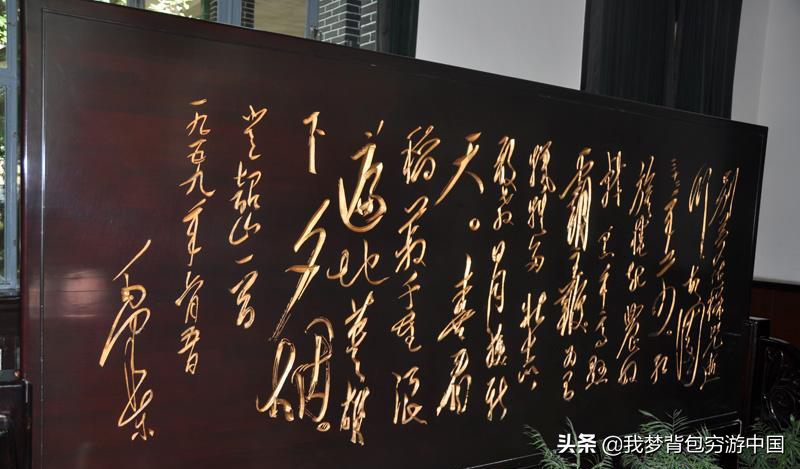 别梦依稀咒逝
川故园
三十二年前红
旗卷起农奴
戟黑手高悬
霸主鞭为有
牺牲多壮志
敢教日月换新
天。喜看
稻菽千重浪
遍地英雄
下夕烟。
登韶山一首
一九五九年六月
毛泽东
头条 @我梦背包穷游中国